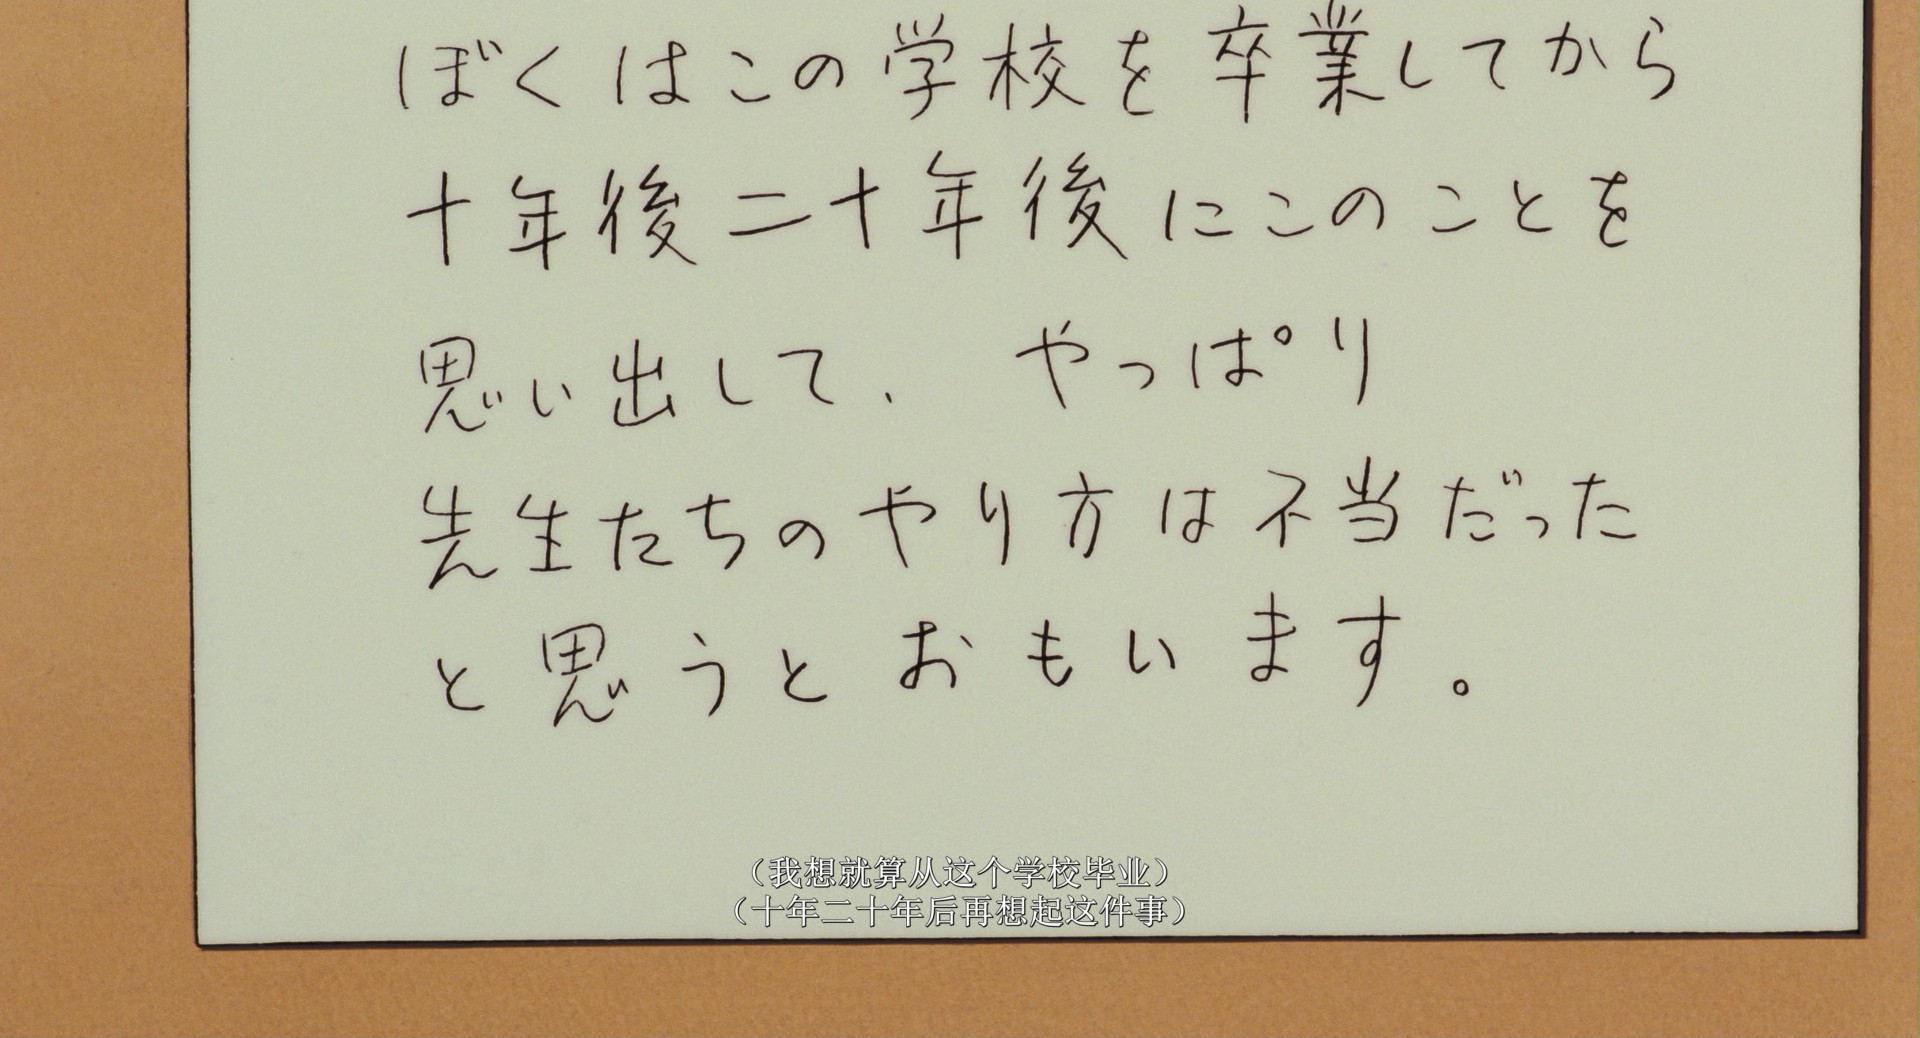 ぼくはこの学校を卒業してから
十年後二十年後にこのことを
思い出して、 やっぱり
先生たちのやり方は不当だった
と思うとおもいます。
（我想就算从这个学校毕业）
（十年二十年后再想起这件事）